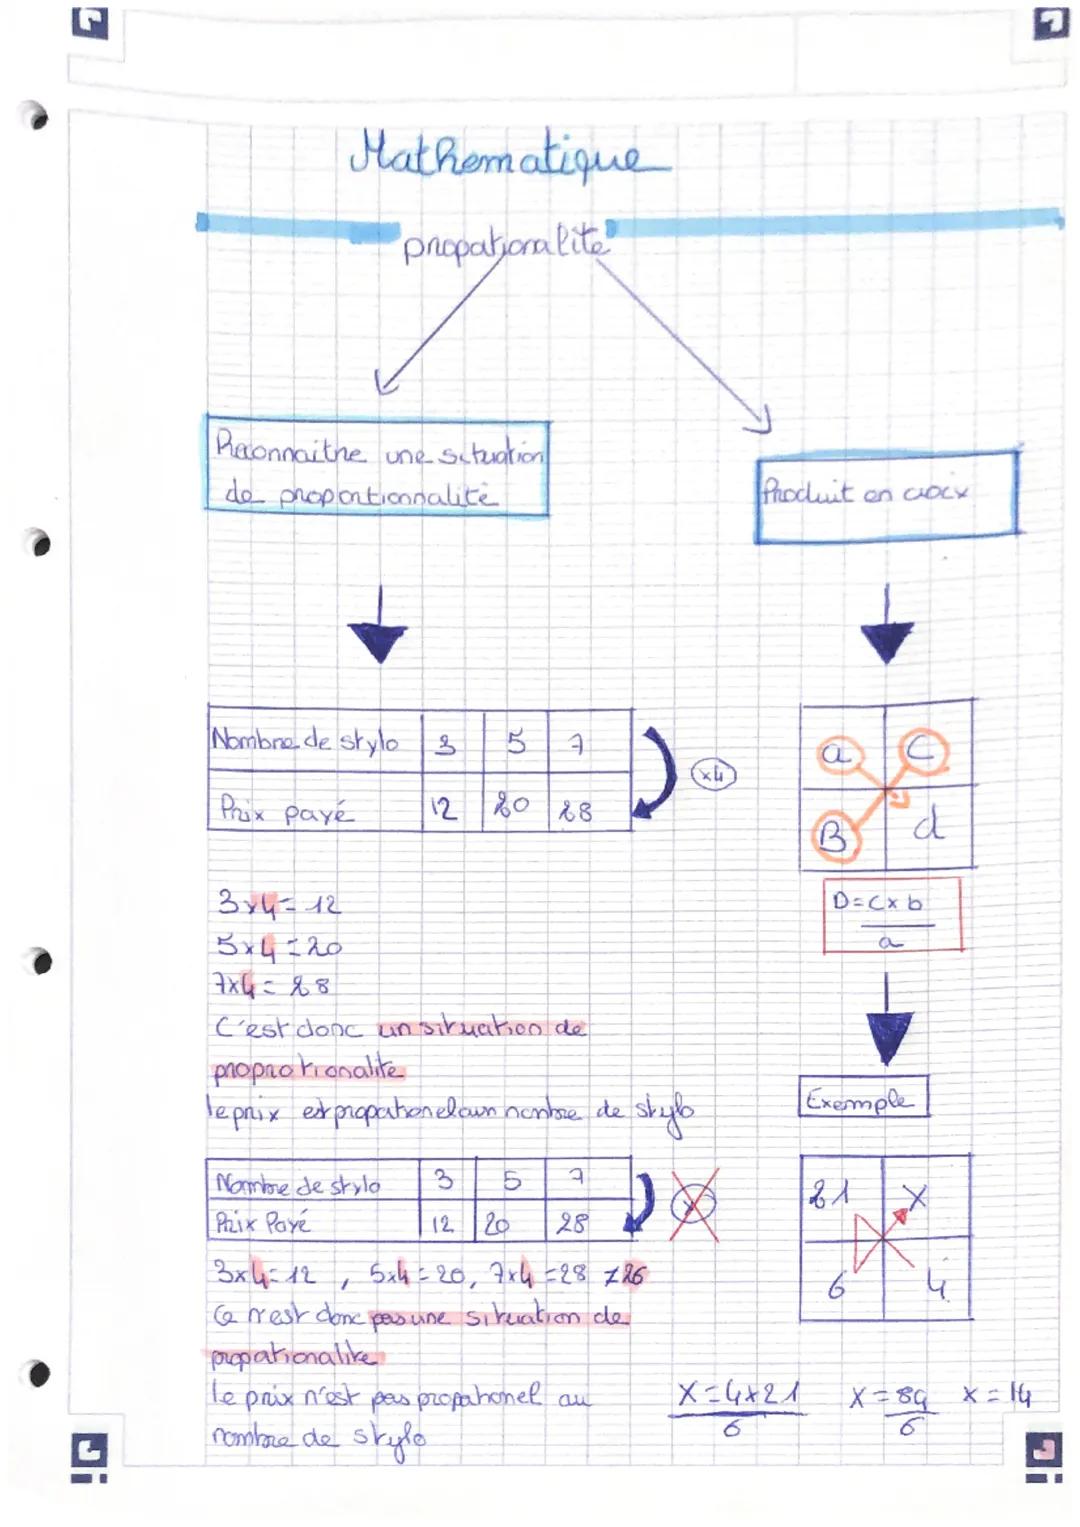 Mathematique
propationalité
Reconnaithe une situation
de proportionnalité
Produit en croix
Nombre de stylo 3 5 7
Prix payé 12 20 28
x4
a C
B d
D=Cxb
a
3x4=12
5x4=20
7x4=28
C'est donc un situation de
proprotionalite
le prix est propationel aun nombre de stylo
Exemple
Nombre de stylo 3 5 7
Prix Payé 12 20 28
21 X
6 4
3x4=12, 5x4=20, 7x4=28 ≠26
Ce n'est donc pas une situation de
propationalite
le prix n'est pas propationel au
nombre de stylo
X=4x21
6
X=84
6
X=14